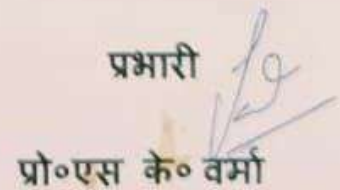 प्रभारी
प्रो०एस के० वर्मा